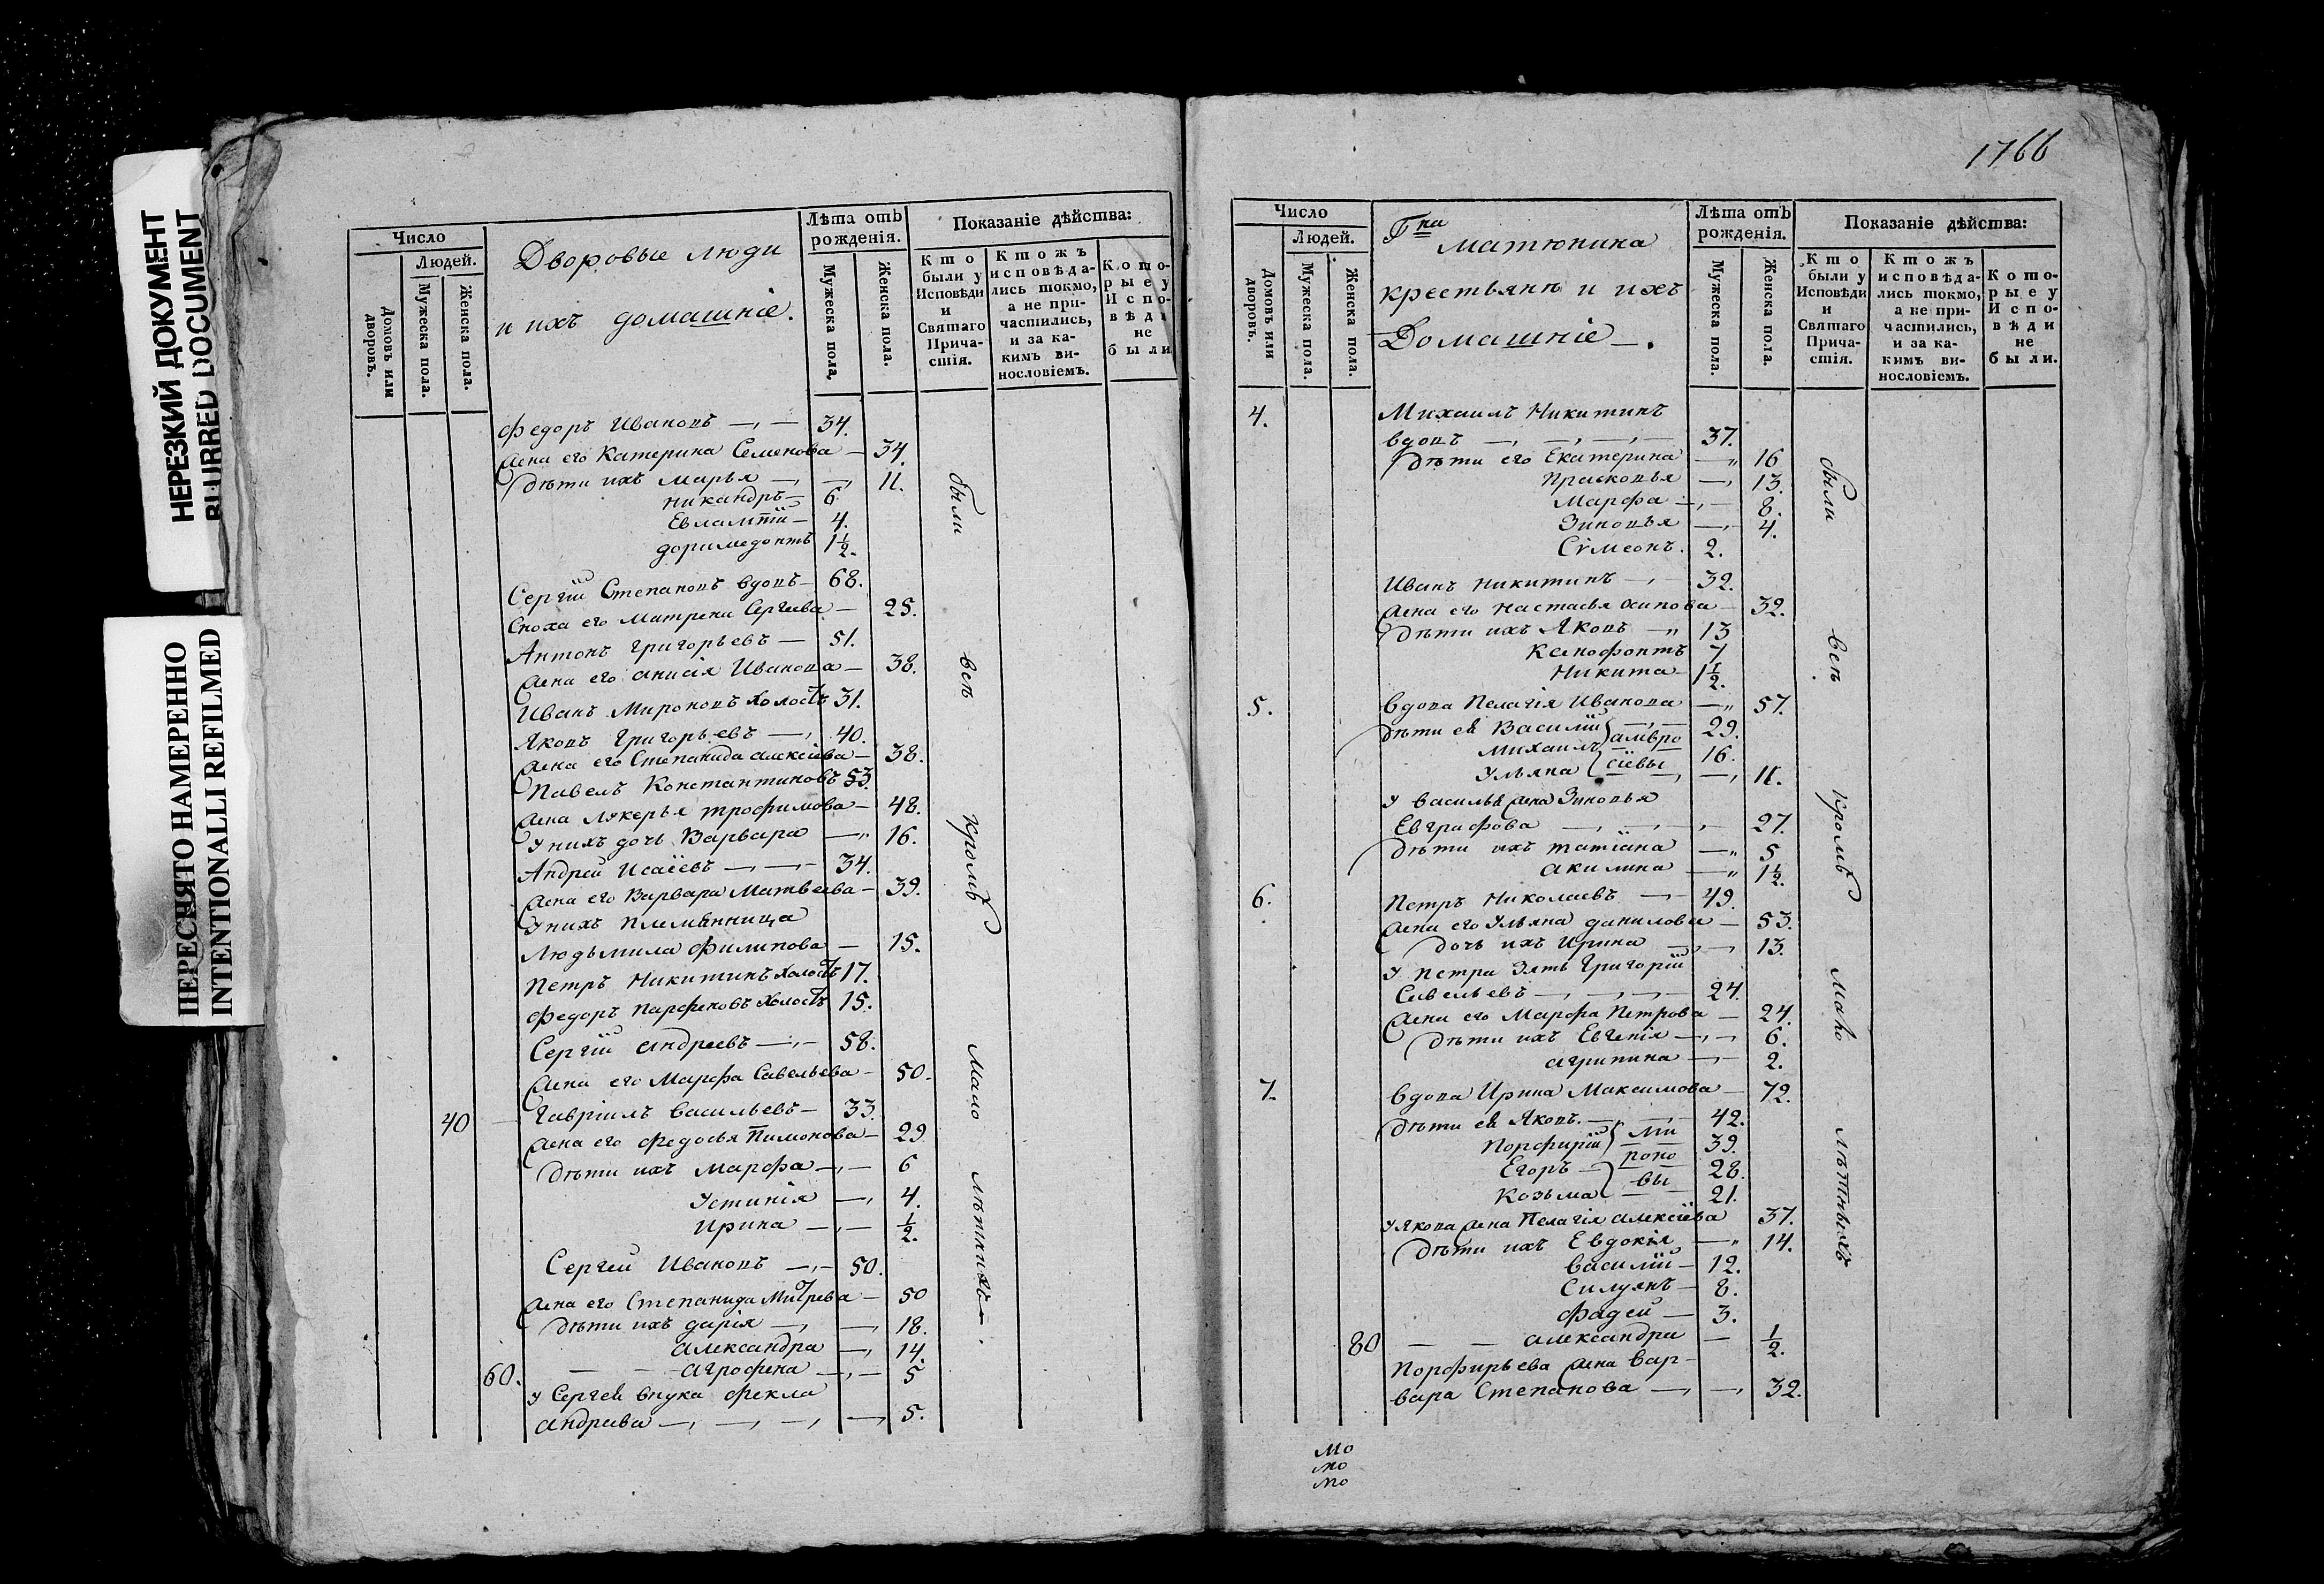 НЕРЕЗКИЙ ДОКУМЕНТ
BLURRED DOCUMENT
ПЕРЕСНЯТО НАМЕРЕННО
INTENTIONALLI REFILMED
Число
Людей.
Домовъ или дворовъ.
Мужеска пола.
Женска пола.
Дворовые люди
и ихъ домашніе.
Лѣта отъ рожденія.
Мужеска пола,
Женска пола.
Показаніе дѣйства:
Кто были у Исповѣди и Святаго Причастія.
Ктожъ исповѣдались токмо, а не причастились, и за какимъ винословіемъ.
Которые у Исповѣди не были
Федоръ Ивановъ 34.
жена его Катерина Семенова 34.
дѣти ихъ Марья 11.
Никандръ 6
Евлампій 4.
доримедонтъ 1 1/2.
Сергій Степановъ вдовъ 68.
Сноха его Матрена Сергѣева 25.
Антонъ Григорьевъ 51.
жена его анисія Иванова 38.
Иванъ Мироновъ холостъ 31.
Яковъ Григорьевъ 40.
жена его Степанида алексіева 38.
Павелъ Константиновъ 53.
жена лукерья трофимова 48.
У нихъ дочь Варвара 16.
Андрей Исаіевъ 34.
жена его Варвара Матвеева 39.
У нихъ племянница
Людьмила Филипова 15.
Петръ Никитинъ холостъ 17.
Федоръ Парфеновъ холостъ 15.
Сергій андреевъ 58.
жена его Марфа Савельева 50.
40 Гавріилъ Васильевъ 33.
жена его федосья Пимонова 29
дѣти ихъ Марфа 6
Устинія 4.
Ирина 1/2.
Сергей Ивановъ 50.
жена его Степанида Митрева 50
дѣти ихъ дарія 18.
александра 14.
60. агрофена 5
У Сергея внука фекла
андреева 5.
были
всѣ
кромѣ
мало
лѣтнихъ.
1766
Число
Людей.
Домовъ или дворовъ.
Мужеска пола.
Женска пола.
Гна
Матюнина
крестьяне и ихъ
Домашніе.
Лѣта отъ рожденія.
Мужеска пола.
Женска пола.
Показаніе дѣйства:
Кто были у Исповѣди и Святаго Причастія.
Ктожъ исповѣдались токмо, а не причастились, и за какимъ винословіемъ.
Которые у Исповѣди не были.
4. Михаилъ Никитинъ
вдовъ 37.
дѣти его Екатерина 16
Прасковья 13.
Марфа 8.
Зиновья 4.
Сѵмеонъ. 2.
Иванъ Никитинъ 32.
жена его Настасья осипова 32.
дѣти ихъ Яковъ 13
Ксенофонтъ 7
Никита 1 1/2.
5. вдова Пелагія Иванова 57.
дѣти ея Василій 29.
Михаилъ амвро 16.
Ульяна сіевы 11.
У василья жена Зиновья
Евграфова 27.
дѣти ихъ татіана 5
акилина 1 1/2.
6. Петръ Николаевъ 49.
жена его Ульяна данилова 53.
дочь ихъ Ирина 13.
У Петра Зять Григорій
Савельевъ 24.
жена его Марфа Петрова 24.
дѣти ихъ Евгенія 6.
агрипина 2.
7. вдова Ирина Максимова 72.
дѣти ея Яковъ. 42.
Порфирій ми 39.
Егоръ роно 28.
Козьма вы 21.
У Якова жена Пелагія алексіева 37.
дѣти ихъ Евдокія 14.
василій 12.
Силуянъ 8.
Фадей 3.
80 александра 1/2.
Порфирьева жена Вар-
вара Степанова 32.
были
всѣ
кромѣ
мало
лѣтныхъ
мо
мо
мо